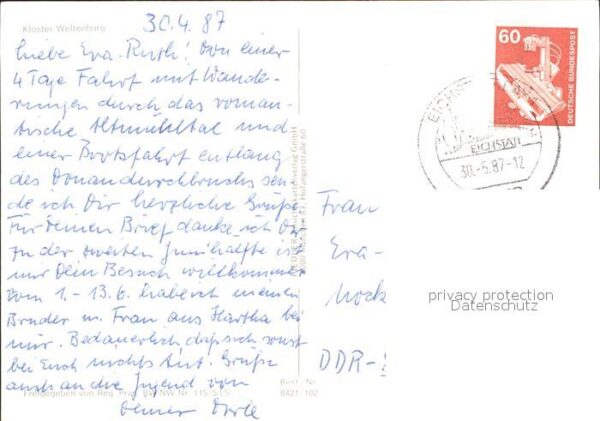 Kloster Weltenburg
30.4.87
Liebe Eva-Ruth! Von einer
4 Tage Fahrt mit Wande-
rungen durch das roman-
tische Altmühltal und
einer Bootsfahrt entlang
des Donaudurchbruchs sen
de ich Dir herzliche Grüße
Für Deinen Brief danke ich Dir
zu der zweiten Junihälfte ist
mir Dein Besuch willkommen
vom 1. - 13.6. habe ich meinen
Bruder m. Frau aus Hartha bei
mir. Bedauerlich daß sich sonst
bei Euch nichts tut. Grüße
auch an die Jugend von
Deiner
Freigegeben von Reg. Präs. BW/NW Nr. 115/515
Best. Nr.
8421/102
60
DEUTSCHE BUNDESPOST
EICHSTÄTT
30.-5.87-12
Frau
Eva-
Mock
DDR-
privacy protection
Datenschutz